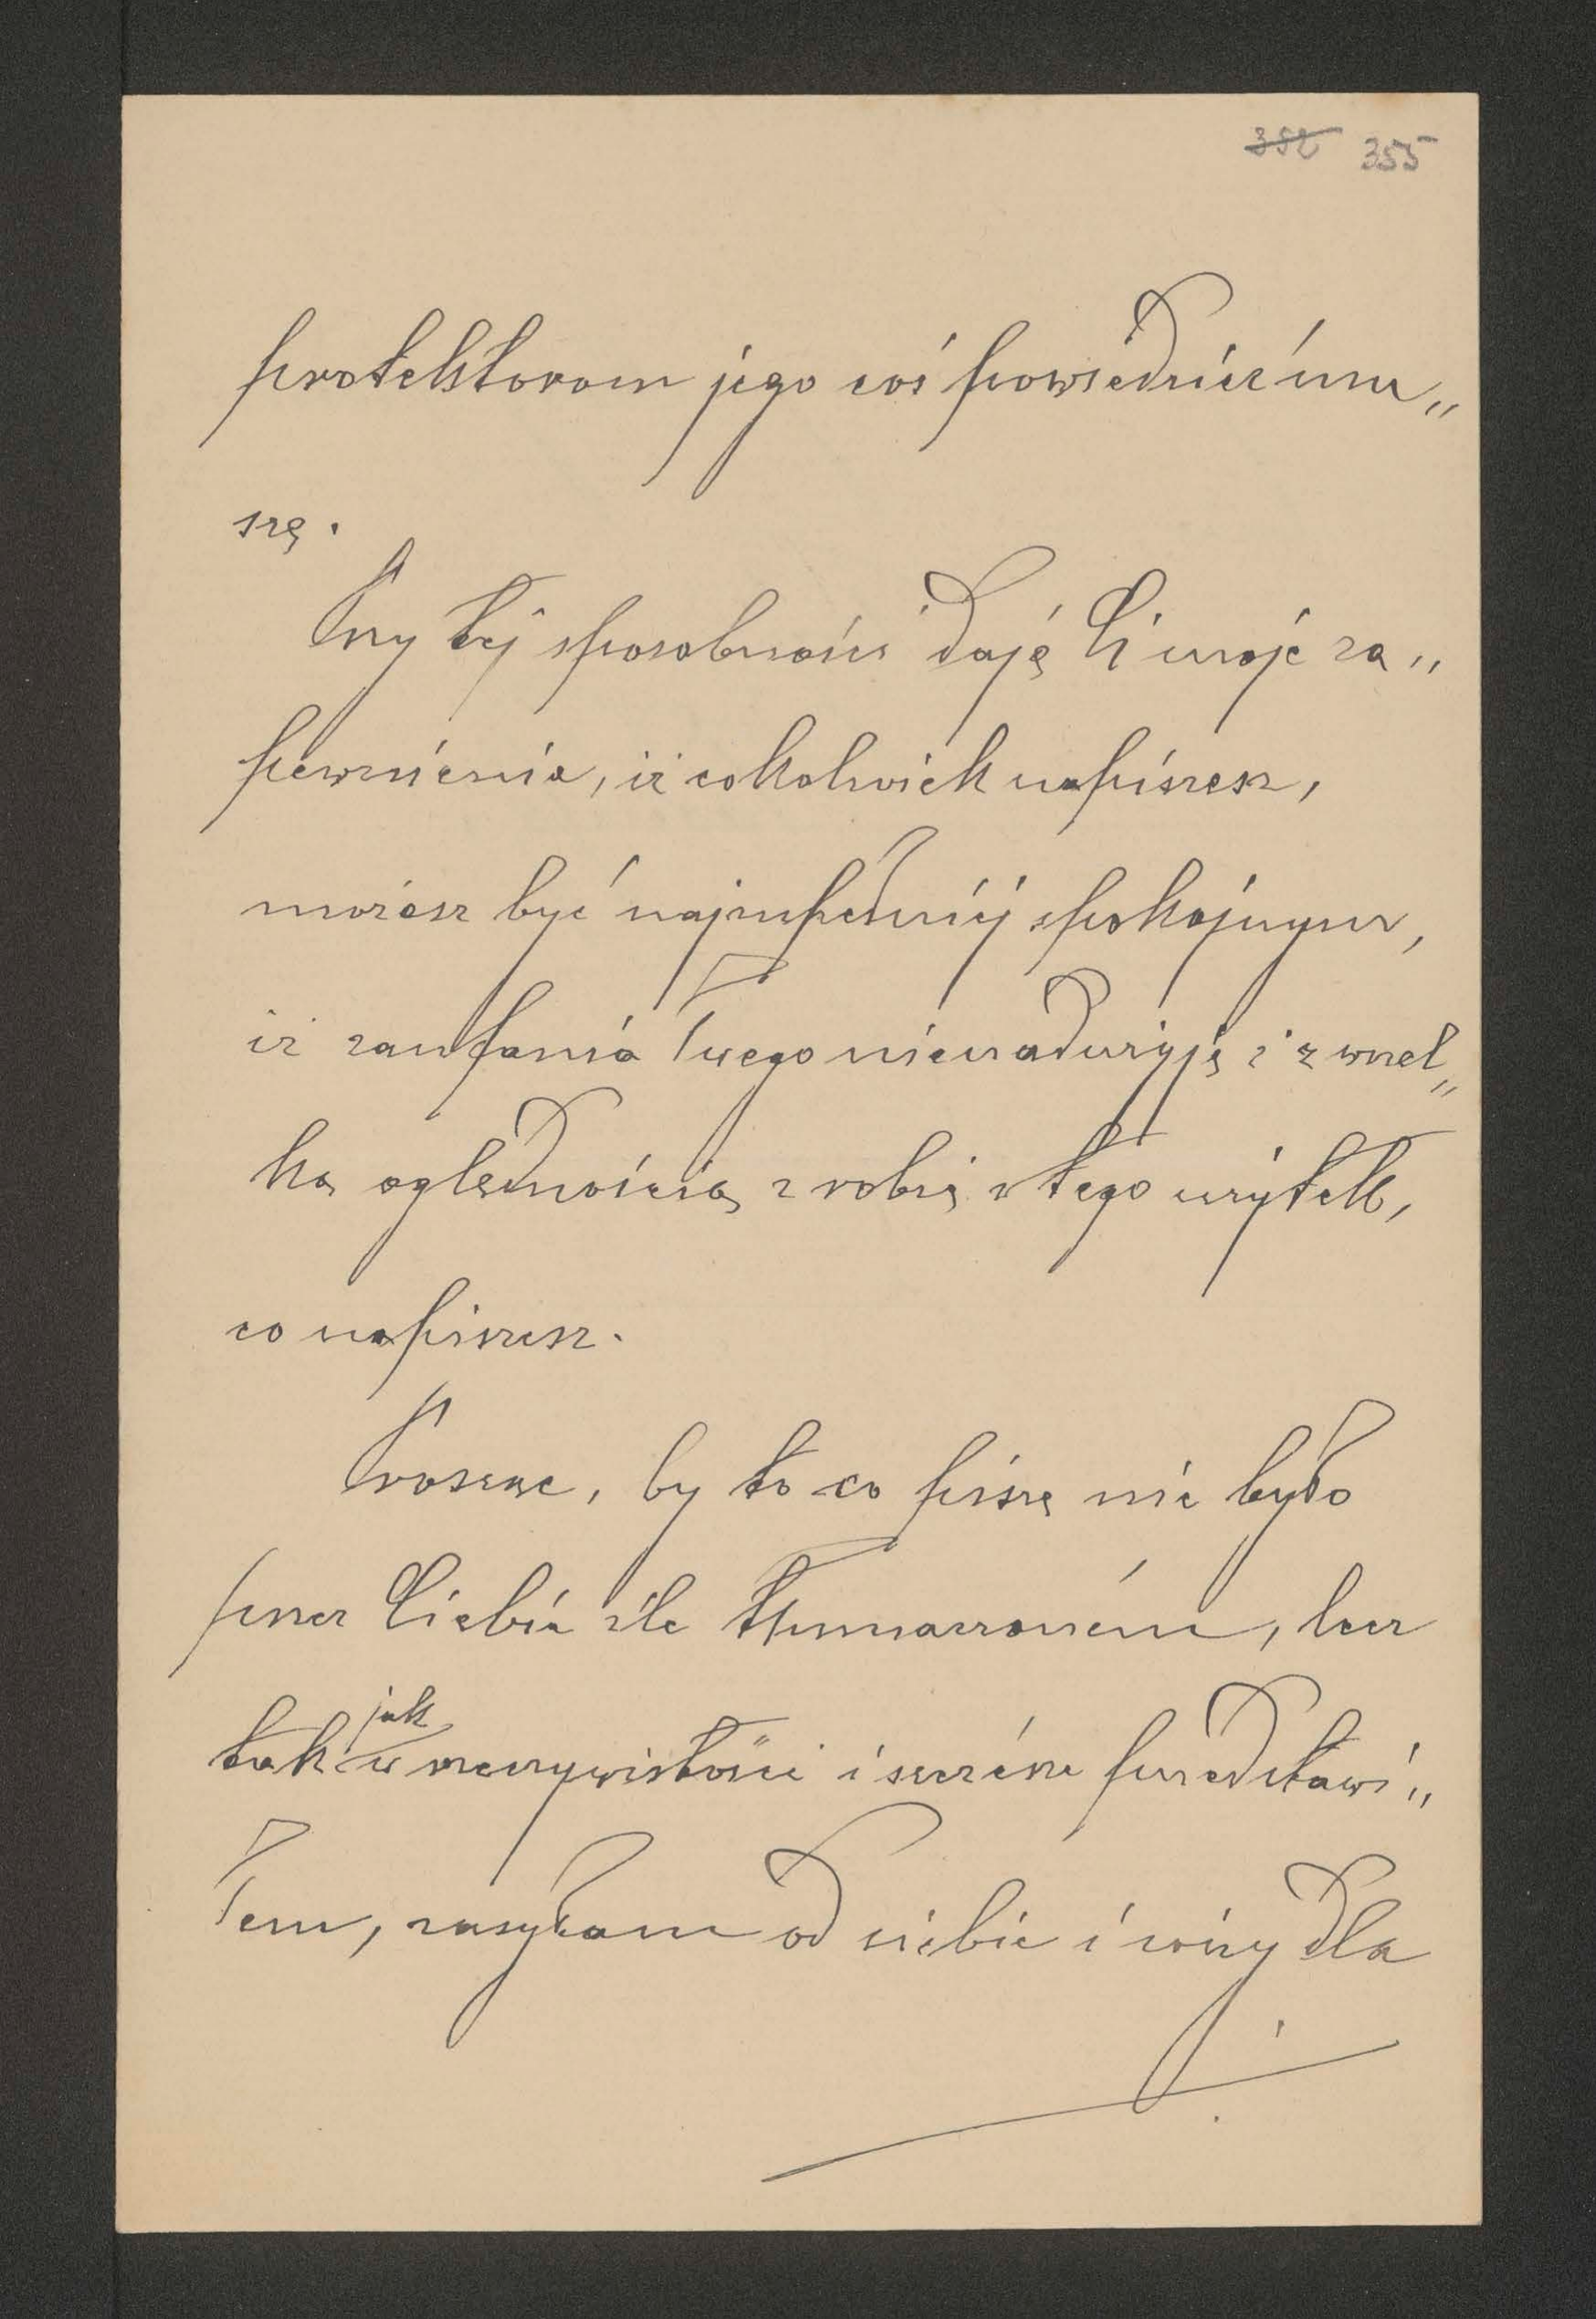 352 355
protektorom jego coś powiedzieć mu„
szę.
Przy téj sposobności daję Ci moje za„
pewnienia, iż cokolwiek napiszesz,
możesz być najzupełniéj spokojnym,
iż zaufania Twego nienadużyję i z wszel„
ką oględnością zrobię z tego użytek,
co napiszesz.
Prosząc, by to co piszę nie było
przez Ciebie źle tłumaczoném, lecz
tak jak w rzeczywistości i szczérze przedstawi„
łem, zasyłam od siebie i żony dla